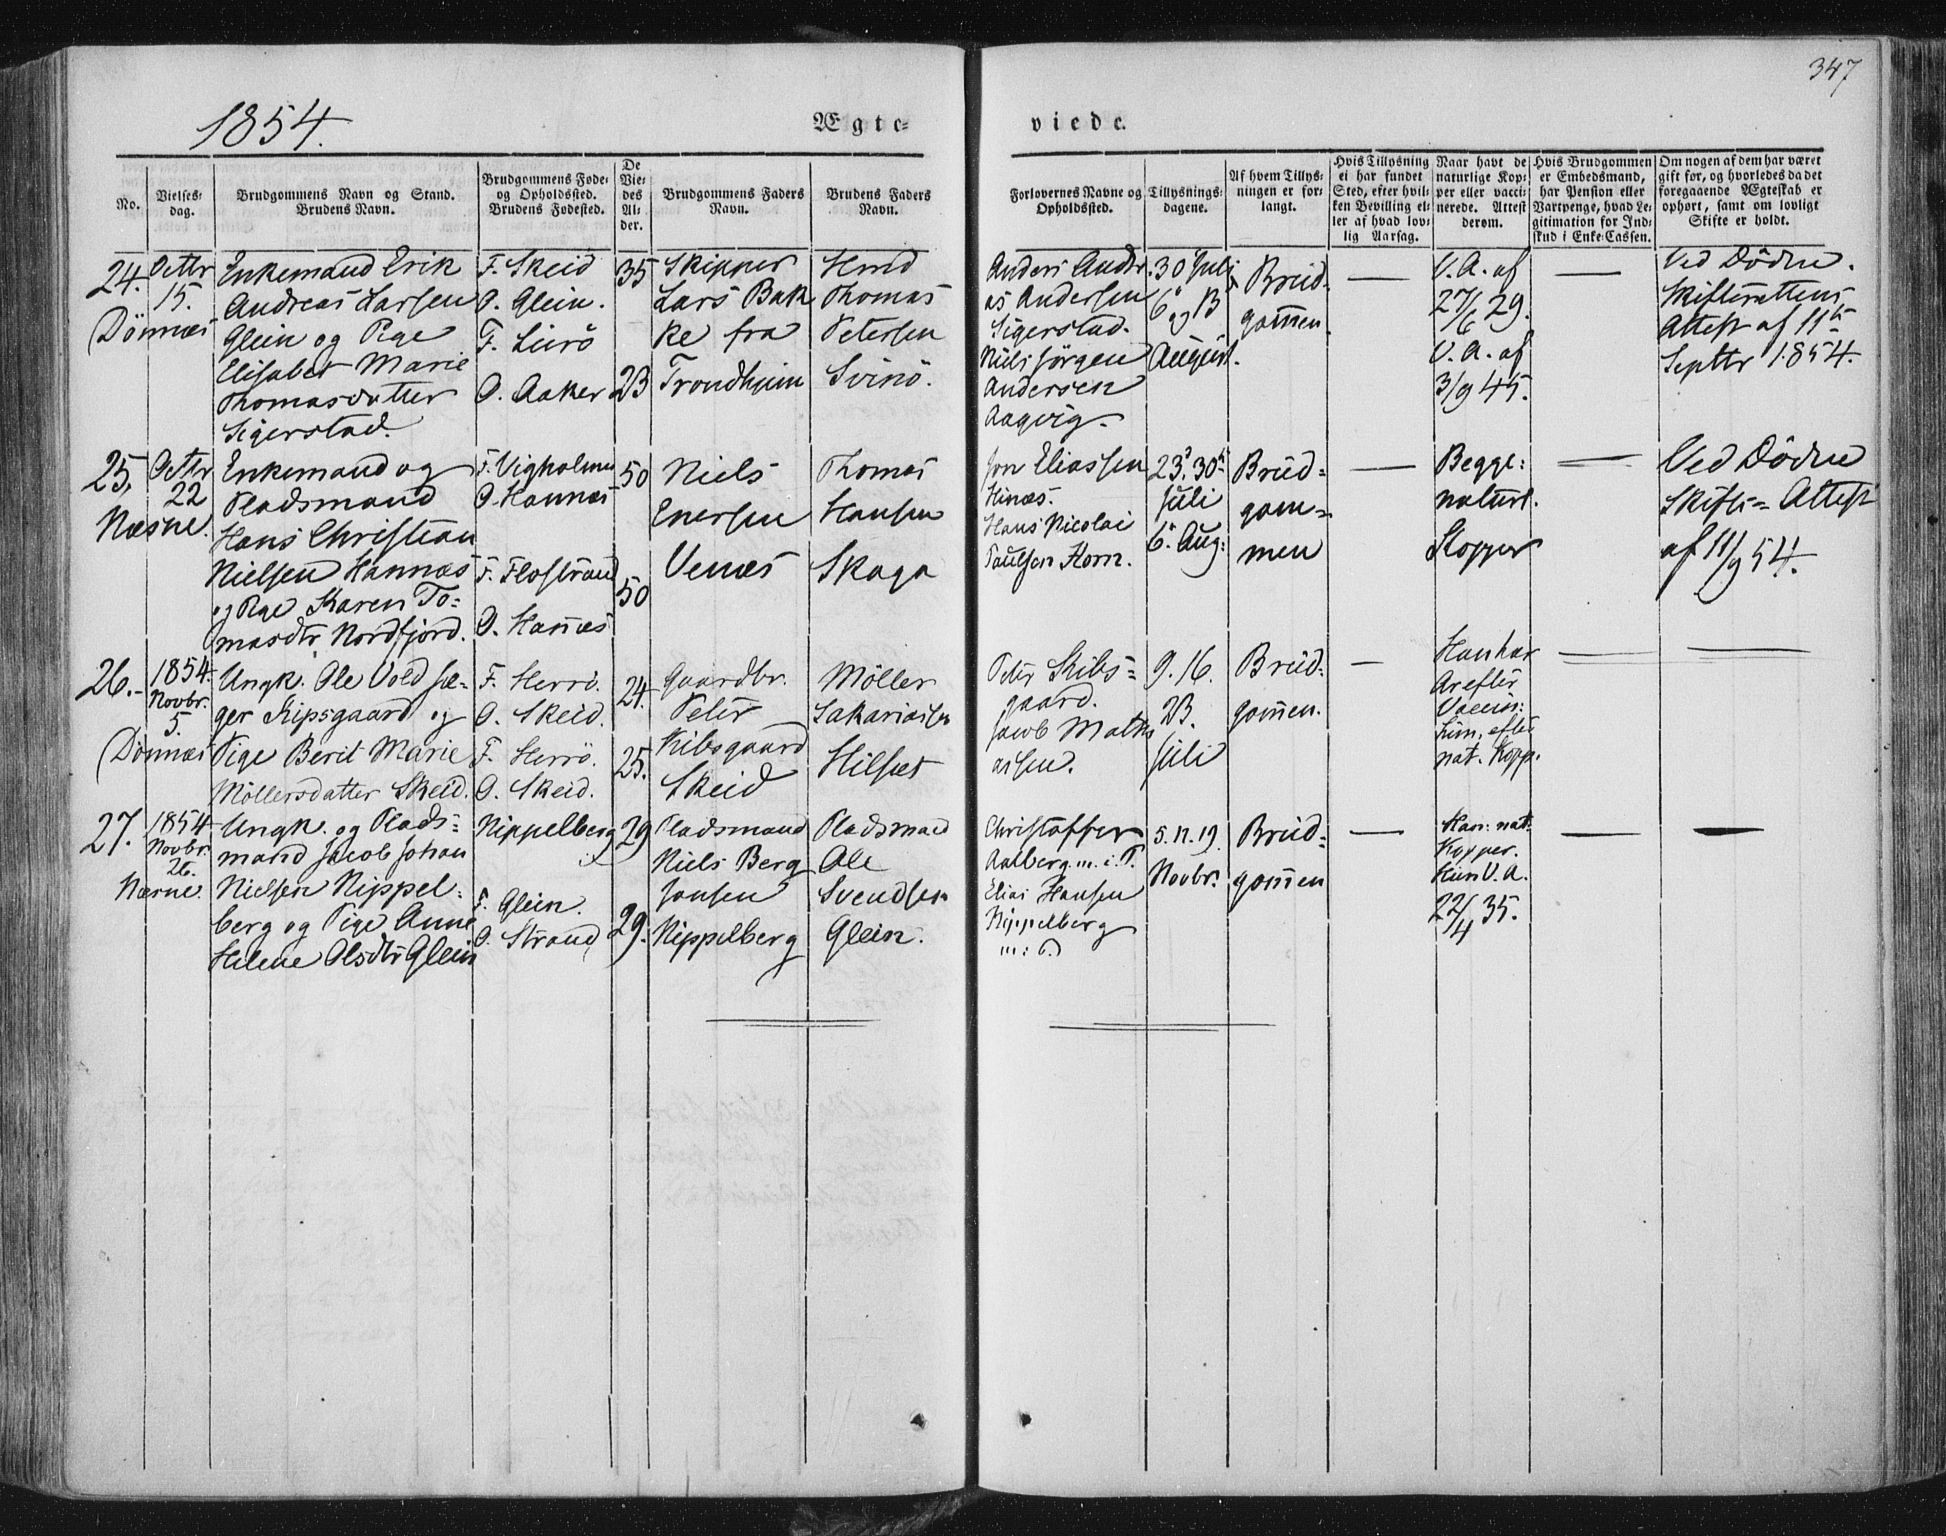 347
1854.
Ægte-
viede.
No.
Vielses-
dag.
Brudgommens Navn og Stand.
Brudens Navn.
Brudgommens Føde-
og Opholdssted.
Brudens Fødested.
De
Vie-
des
Al-
der.
Brudgommens Faders
Navn.
Brudens Faders
Navn.
Forlovernes Navne og
Opholdssted.
Tillysnings-
dagene.
Af hvem Tillys-
ningen er for-
langt.
Hvis Tillysning
ei har fundet
Sted, efter hvil-
ken Bevilling el-
ler af hvad lov-
lig Aarsag.
Naar havt de
naturlige Kop-
per eller vacci-
nerede. Attest
derom.
Hvis Brudgommen
er Embedsmand,
har Pension eller
Vartpenge, hvad Le-
gitimation for Ind-
skud i Enke-Cassen.
Om nogen af dem har været
gift før, og hvorledes da det
foregaaende Ægteskab er
ophørt, samt om lovligt
Skifte er holdt.
24.
Octbr
15.
Dönnæs
Enkemand Erik
Andreas Larsen
Glein og Pige
Elisabet Marie
Thomasdatter
Sigerstad.
F. Skeid
O. Glein.
F. Lurö
O. Aaker
35
23
Skipper
Lars Bak
ke fra
Trondhjem
Hmd
Thomas
Petersen
Svinö.
Anders Andre
as Andersen
Sigerstad.
Niels Jörgen
Andersen
Aagvig.
30 Juli
6 og 13
August.
Brud-
gommen
V. A. af
27/6 29.
V. A. af
3/9 45.
Ved Döden.
Skifterettens
Attest af 11te
Septbr 1854.
25,
Octbr
22
Næsne.
Enkemand og
Pladsmand
Hans Christian
Nielsen Hannæs
og Pige Karen To-
masdtr Nordfjord.
F. Vigholmen
O. Hannæs
F. Flostrand
O. Hannæs
50
50
Niels
Enersen
Venæs
Thomas
Hansen
Skaga
Jon Eliassen
Hinæs.
Hans Nicolai
Paulsen Horn.
23. 30
Juli
6. Aug:
Brud-
gom-
men
Begge:
naturl.
Kopper
Ved Döden
Skifte- Attest
af 11/9 54.
26.-
1854
Novbr.
5.
Dönnæs
Ungk. Ole Vold Jæ-
ger Kipsgaard og
Pige Berit Marie
Möllersdatter Skeid.
F. Herrö.
O. Skeid.
F. Herrö.
O. Skeid.
24.
25.
Gaardbr.
Peter
Kibsgaard
Skeid
Möller
Sakariasen
Hilset
Peter Kibs-
gaard.
Jacob Mathi
asen.
9. 16.
23.
Juli
Brud-
gommen.
Han har
Ar efter
Vaccin:
hun, efter
nat. Kopp.
27.
1854
Novbr.
26.
Næsne.
Ungk. og Plads-
mand Jacob Johan
Nielsen Nippel-
berg og Pige Anne
Helene Olsdtr Glein
Nippelberg
F. Glein.
O. Strand
29
29.
Pladsmand
Niels Berg
Jonsen
Nippelberg
Pladsmand
Ole
Svendsen
Glein.
Christoffer
Aalberg m. i. P.
Elias Hansen
Nippelberg
5. 12. 19.
Novbr.
Brud-
gommen
Han: nat.
Kopper.
Hun V. A.
22/4 35.